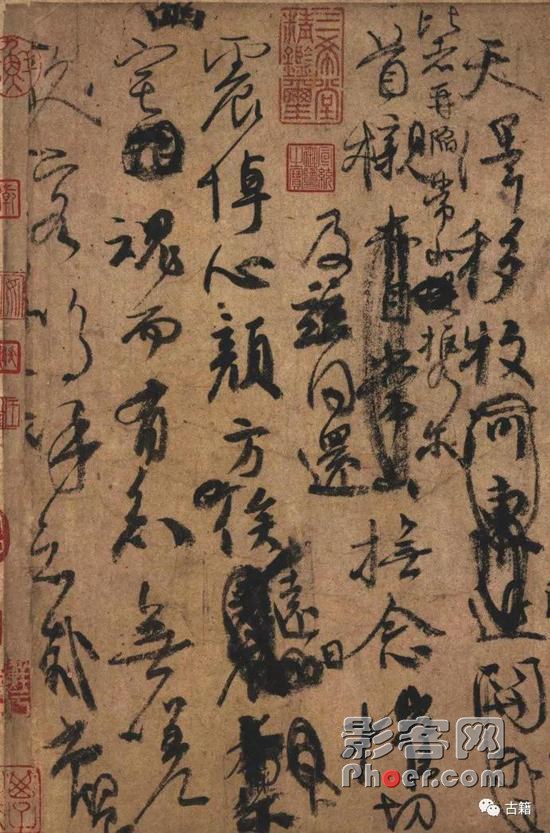 天澤移牧河東近關尔
比者再陷常山攜尔
首櫬亦自常山撫念摧切
及茲同還
震悼心顏方俟遠日
宅魂而有知無嗟
久客嗚呼哀哉尚饗
三希堂精鑑璽
影客网
Phoer.com
古籍